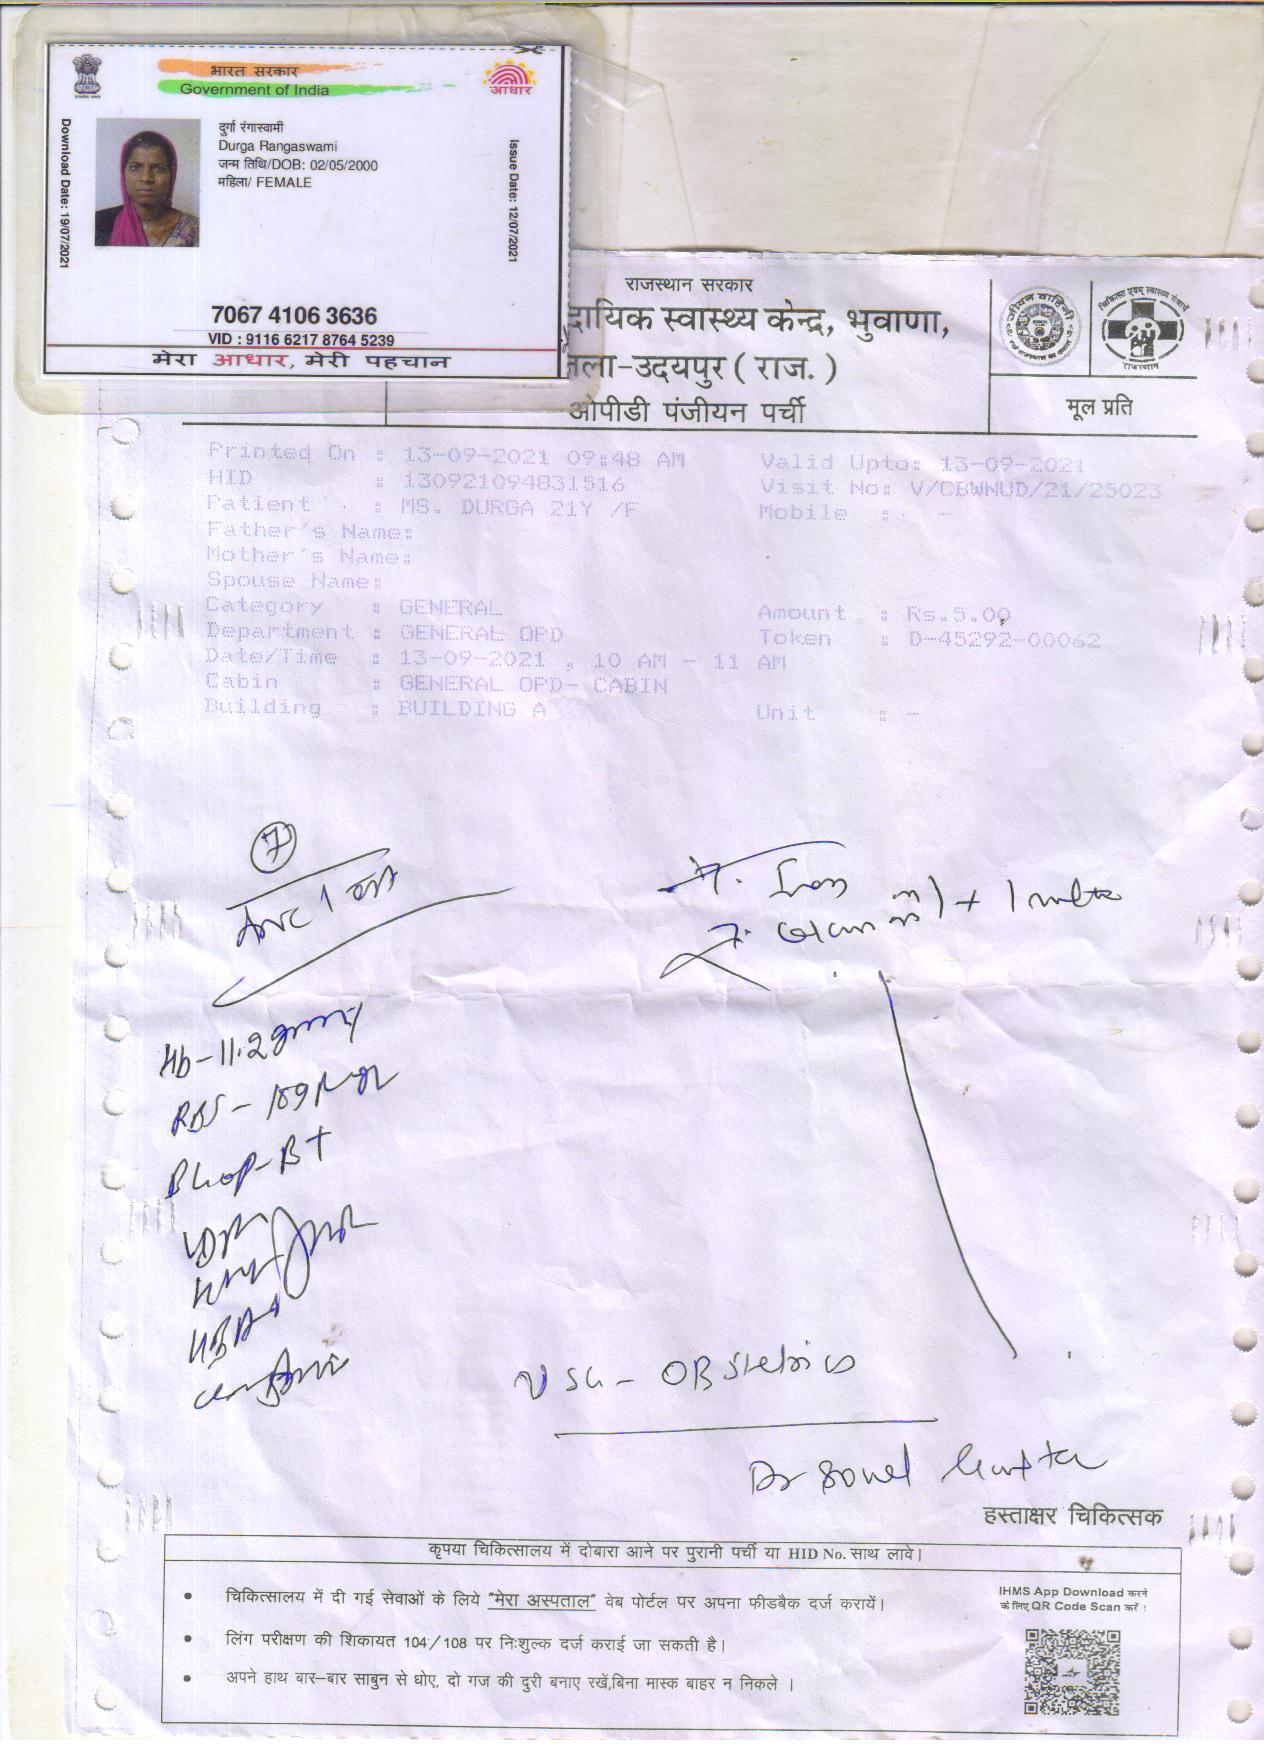 भारत सरकार
Government of India
आधार
Download Date: 19/07/2021
दुर्गा रंगास्वामी
Durga Rangaswami
जन्म तिथि/DOB: 02/05/2000
महिला/ FEMALE
Issue Date: 12/07/2021
7067 4106 3636
VID : 9116 6217 8764 5239
मेरा आधार, मेरी पहचान
राजस्थान सरकार
दायिक स्वास्थ्य केन्द्र, भुवाणा,
ला-उदयपुर ( राज. )
ओपीडी पंजीयन पर्ची
राजस्थान
मूल प्रति
Printed On : 13-09-2021 09:48 AM Valid Upto: 13-09-2021
HID : 130921094831516 Visit No: V/CBWNUD/21/25023
Patient : MS. DURGA 21Y /F Mobile : -
Father's Name:
Mother's Name:
Spouse Name:
Category : GENERAL Amount : Rs.5.00
Department : GENERAL OPD Token : D-45292-00062
Date/Time : 13-09-2021 , 10 AM - 11 AM
Cabin : GENERAL OPD- CABIN
Building : BUILDING A Unit : -
7
T. Iron
T.
Hb-11.2
RBS - 109
B+
USG - OBstetrics
Dr Sonel Gupta
हस्ताक्षर चिकित्सक
कृपया चिकित्सालय में दोबारा आने पर पुरानी पर्ची या HID No. साथ लावे।
• चिकित्सालय में दी गई सेवाओं के लिये "मेरा अस्पताल" वेब पोर्टल पर अपना फीडबैक दर्ज करायें।
• लिंग परीक्षण की शिकायत 104/108 पर निःशुल्क दर्ज कराई जा सकती है।
• अपने हाथ बार-बार साबुन से धोए, दो गज की दुरी बनाए रखें,बिना मास्क बाहर न निकले ।
IHMS App Download करने
के लिए QR Code Scan करें :